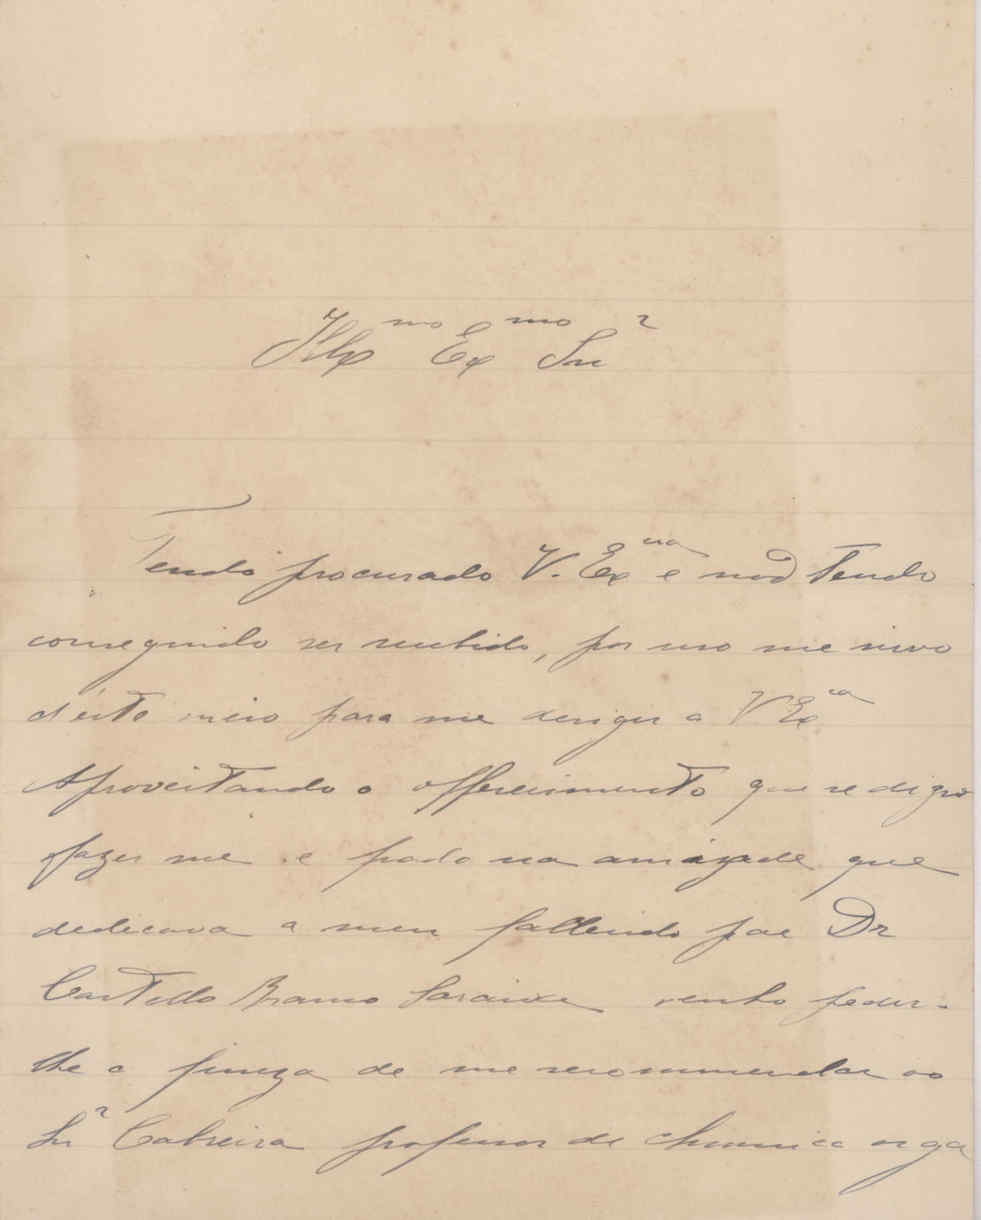 Illmo Exmo Snr
Tendo procurado V. Exca e não tendo
conseguido ser recebido, por isso me sirvo
d'esto meio para me derigir a V Exca
Aproveitando o offerecimento que se digno
fazer me e fiado na amizade que
dedicava a meu fallecido pae Dr
Castello Branco Saraiva venho pedir-
lhe a fineza de me recommendar ao
Snr Cabreira professor de chimica orga